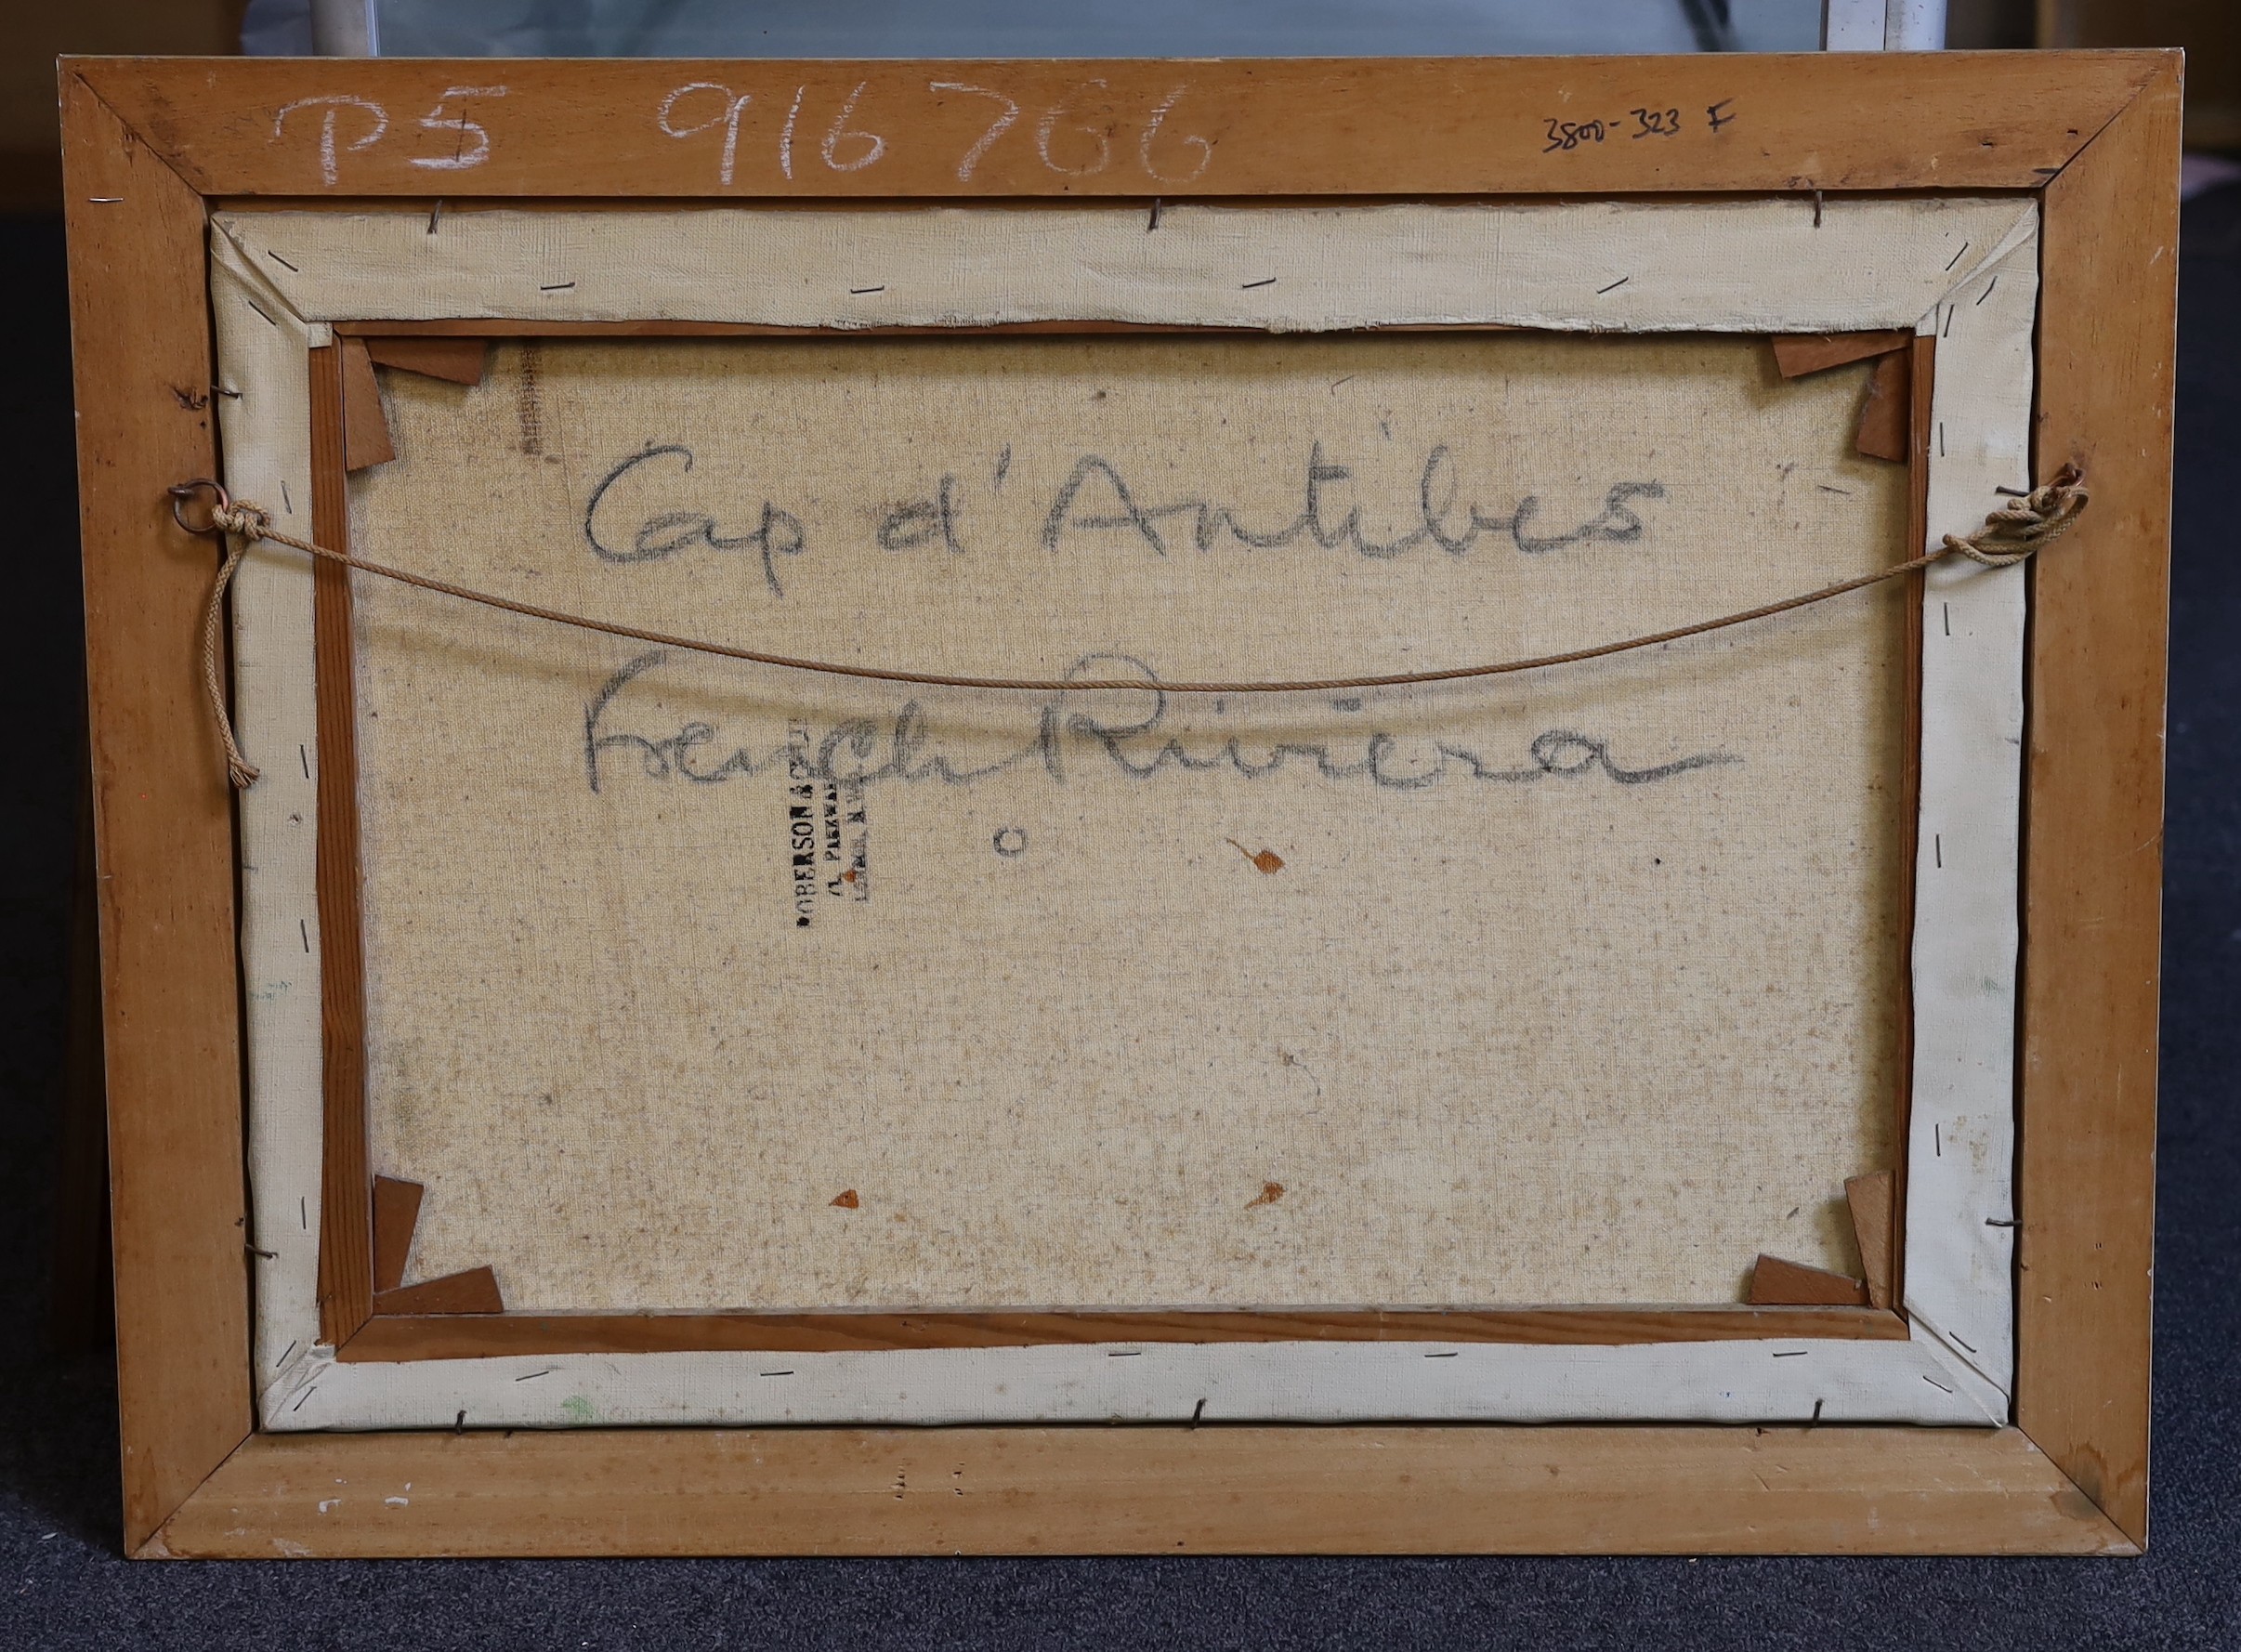 P5 916766
3800-323 F
Cap d'Antibes
French Riviera
ROBERSON &
71, PARKWAY
LONDON, N.W.